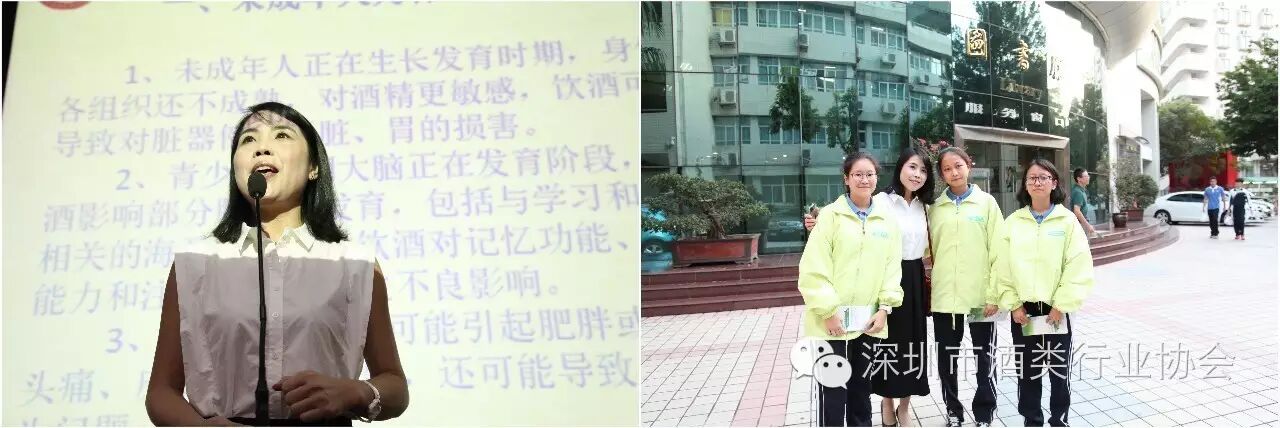 1、未成年人正在生长发育时期，身
各组织还不成熟，对酒精更敏感，饮酒可
导致对脏器 脏、胃的损害。
2、青少 大脑正在发育阶段，
酒影响部分 发育，包括与学习和
相关的海 饮酒对记忆功能、
能力和 不良影响。
3、 可能引起肥胖或
头痛、 还可能导致
图书
Library
服务窗口
深圳市酒类行业协会